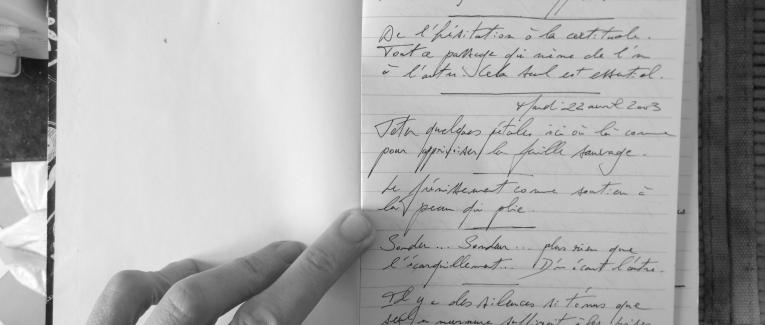 De l'hésitation à la certitude.
Tout ce passage qui mène de l'un
à l'autre. Cela seul est essentiel.
Mardi 22 avril 2003
Jeter quelques pétales ici où là comme
pour apprivoiser la feuille sauvage.
Le frémissement comme soutien à
la peau qui plie.
Sonder... Sonder... plus rien que
l'écarquillement... D'un écart l'autre.
Il y a des silences si ténus que
seul un murmure suffirait à les briser